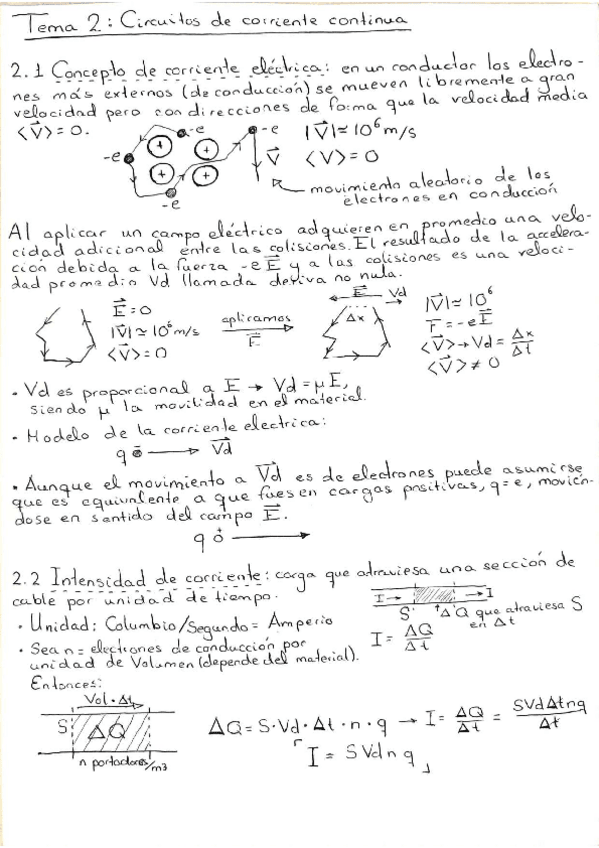 Tema 2: Circuitos de corriente continua
2.1 Concepto de corriente eléctrica: en un conductor los electro-
nes más externos (de conducción) se mueven libremente a gran
velocidad pero con direcciones de forma que la velocidad media
<V⃗> = 0.
-e -e |V⃗| ≃ 10⁶ m/s
-e V⃗ <V> = 0
-e
movimiento aleatorio de los
electrones en conducción
Al aplicar un campo eléctrico adquieren en promedio una velo-
cidad adicional entre las colisiones. El resultado de la acelera-
ción debida a la fuerza -eE⃗ y a las colisiones es una veloci-
dad promedio Vd llamada deriva no nula.
E⃗ = 0
|V⃗| ≃ 10⁶ m/s
<V⃗> = 0
aplicamos
E⃗
E⃗ Vd
Δx
|V⃗| ≃ 10⁶
F = -eE⃗
<V⃗> → Vd = Δx/Δt
<V⃗> ≠ 0
• Vd es proporcional a E → Vd = μE,
siendo μ la movilidad en el material.
• Modelo de la corriente electrica:
q Vd
• Aunque el movimiento a Vd es de electrones puede asumirse
que es equivalente a que fuesen cargas positivas, q = e, movién-
dose en sentido del campo E⃗.
q
2.2 Intensidad de corriente: carga que atraviesa una sección de
cable por unidad de tiempo.
I → → I
S ΔQ que atraviesa S
en Δt
• Unidad: Columbio/Segundo = Amperio
I = ΔQ/Δt
• Sea n = electrones de conducción por
unidad de Volumen (depende del material).
Entonces:
Vol · Δt
S ΔQ
n portadores/m3
ΔQ = S · Vd · Δt · n · q → I = ΔQ/Δt = SVdΔtnq/Δt
I = S Vd n q